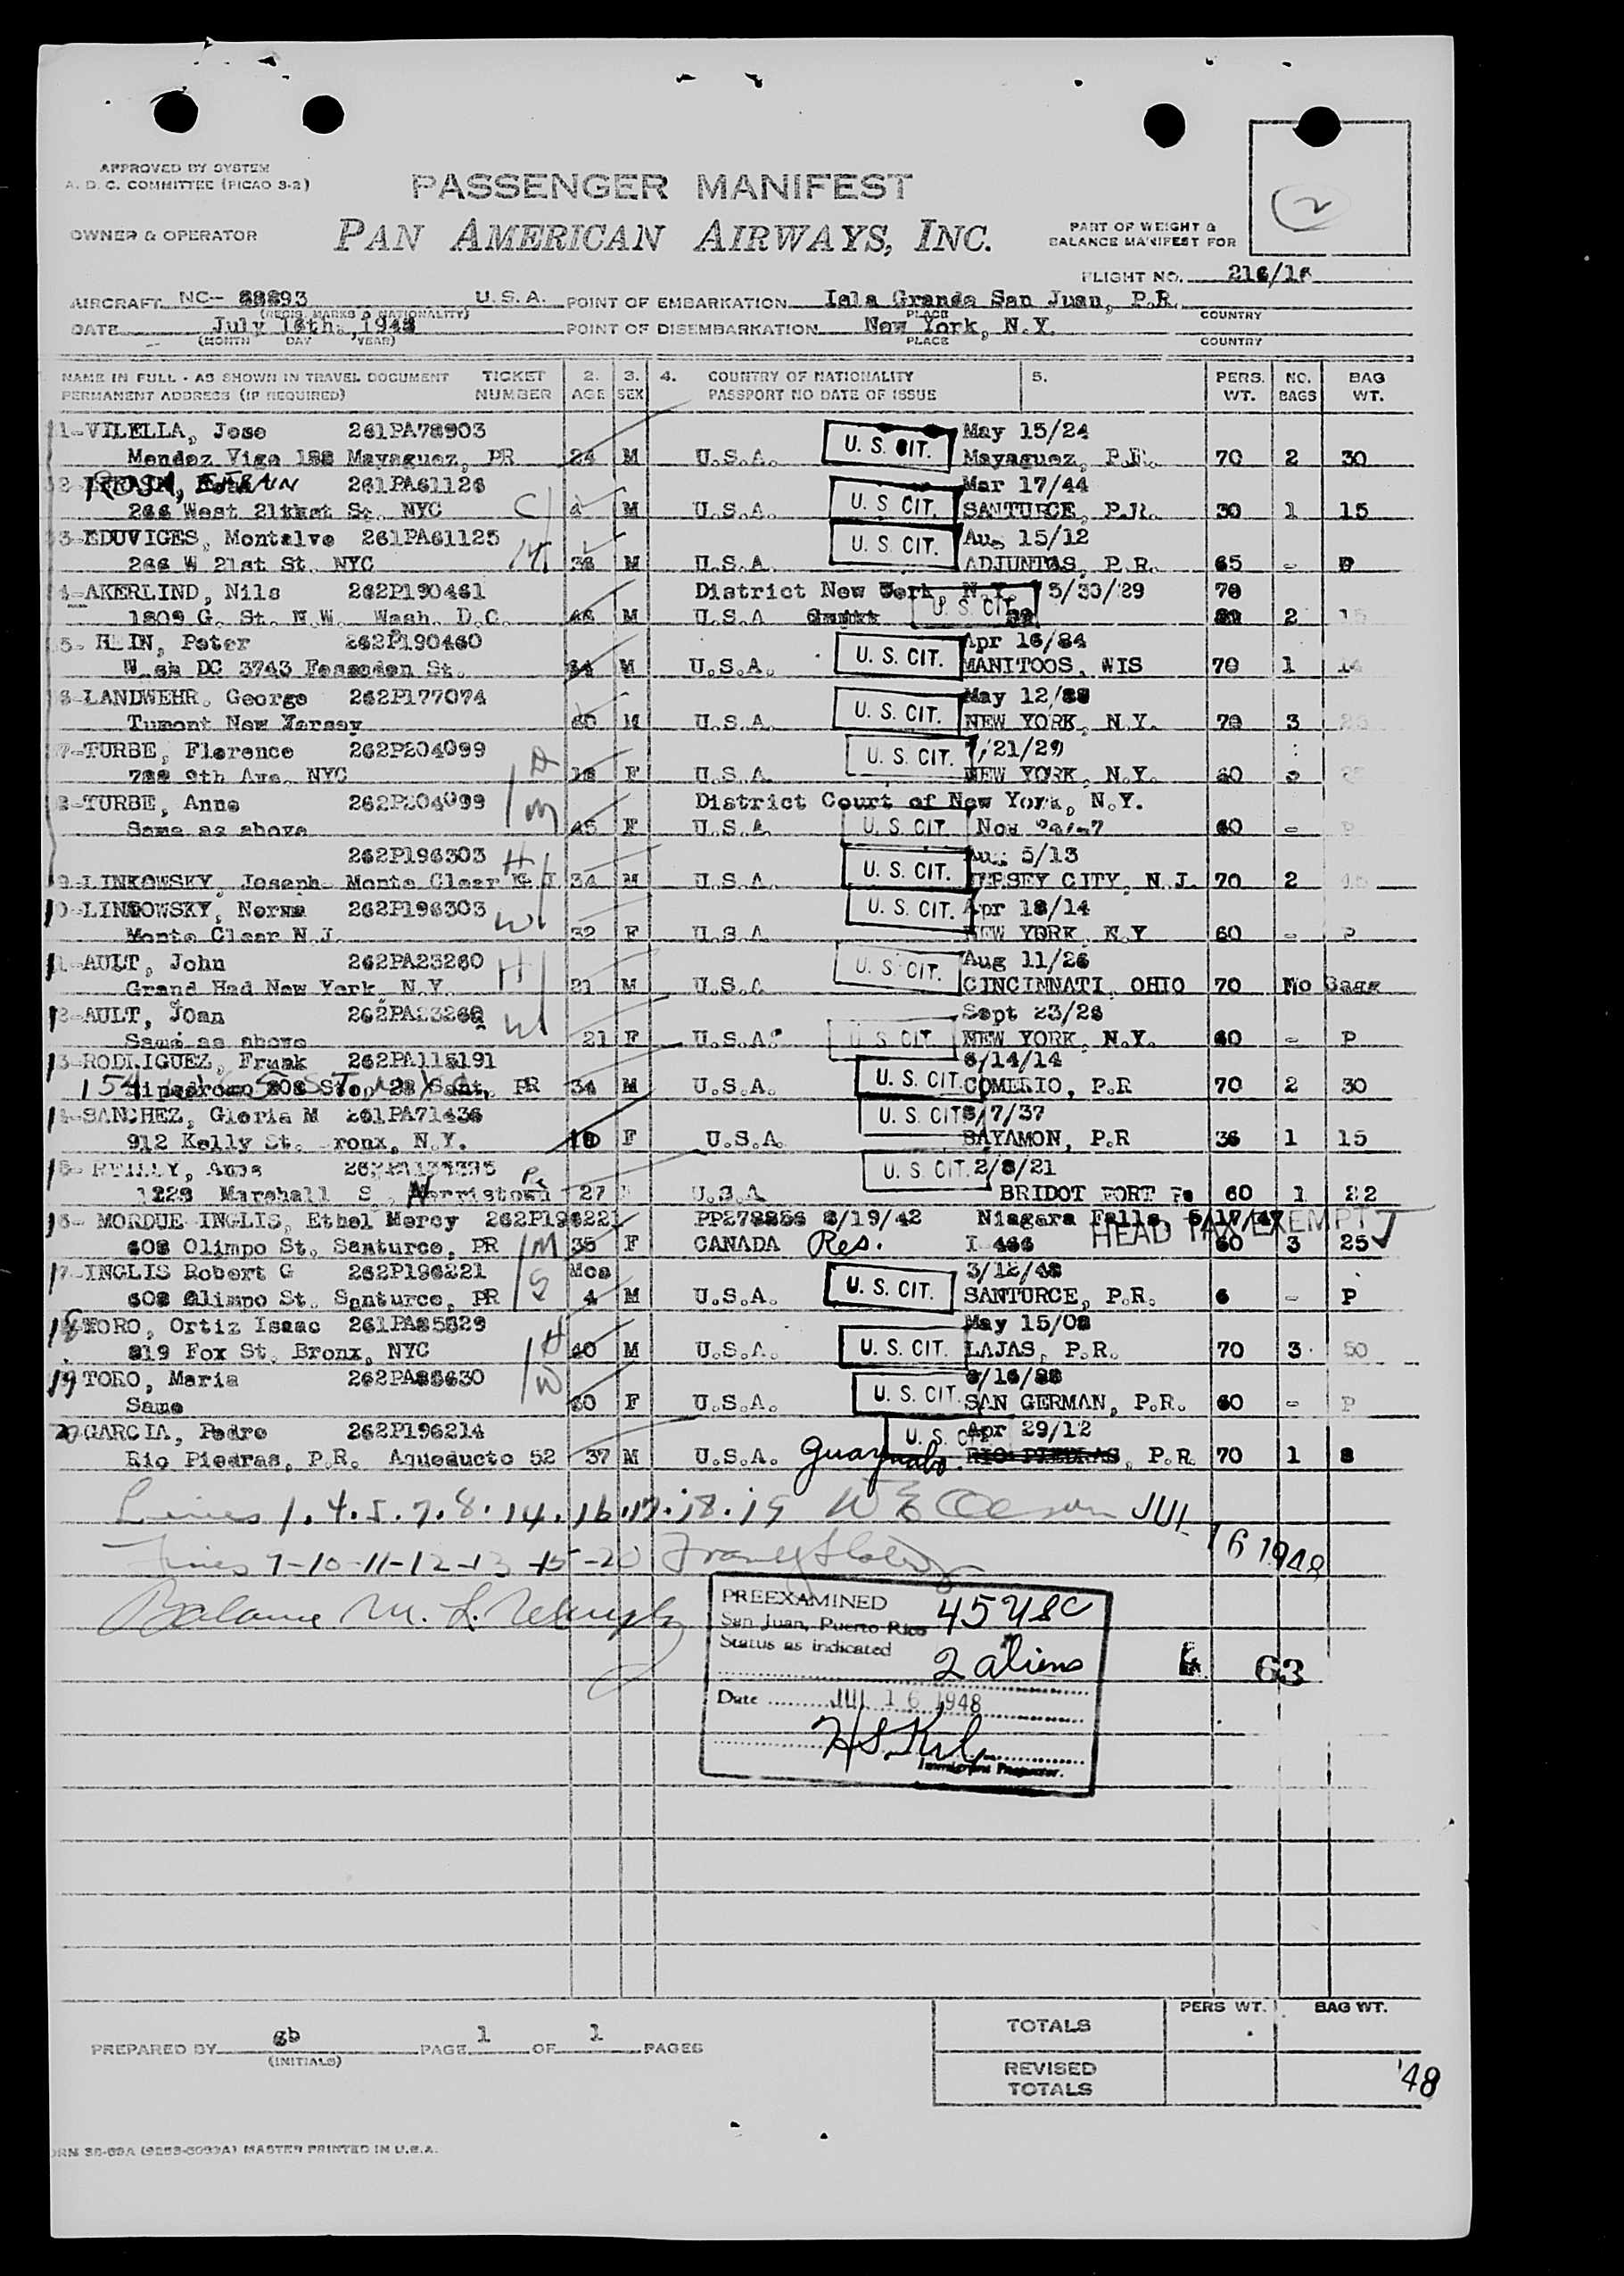 APPROVED BY SYSTEM
A. D. C. COMMITTEE (PICAO 3-2)
PASSENGER MANIFEST
OWNER & OPERATOR
PAN AMERICAN AIRWAYS, INC.
PART OF WEIGHT &
BALANCE MANIFEST FOR
2
FLIGHT NO. 216/16
AIRCRAFT NC- 88893 U.S.A. POINT OF EMBARKATION Isla Grande San Juan, P.R.
(REGIS. MARKS & NATIONALITY) PLACE COUNTRY
DATE July 16th, 1948 POINT OF DISEMBARKATION New York, N.Y.
(MONTH DAY YEAR) PLACE COUNTRY
NAME IN FULL - AS SHOWN IN TRAVEL DOCUMENT TICKET 2. 3. 4. COUNTRY OF NATIONALITY 5. PERS. NO. BAG
PERMANENT ADDRESS (IF REQUIRED) NUMBER AGE SEX PASSPORT NO DATE OF ISSUE WT. BAGS WT.
1-VILELLA, Jose 261PA78903 U.S. CIT. May 15/24
Mendez Vigo 188 Mayaguez, PR 24 M U.S.A. Mayaguez, P.R. 70 2 30
2- EFRAIN 261PA61126 U.S. CIT. Mar 17/44
266 West St. NYC C M U.S.A. SANTURCE, P.R. 30 1 15
3-EDUVIGES, Montalvo 261PA61125 U.S. CIT. Aug 15/12
266 W 21st St. NYC M U.S.A. ADJUNTAS, P.R. 65 - P
4-AKERLIND, Nils 262P190461 District New York, N.Y. 5/30/29 70
1809 G. St. N.W. Wash. D.C. M U.S.A U.S. CIT. 2 15
5- Peter 262P190460 U.S. CIT. Apr 16/84
Wash DC 3743 Fessenden St. 64 M U.S.A. MANITOOS, WIS 70 1 14
6-LANDWEHR, George 262P177074 U.S. CIT. May 12/88
Tumont New Yersey 60 M U.S.A. NEW YORK, N.Y. 70 3
7-TURBE, Florence 262P204099 U.S. CIT. 7/21/29
788 9th Ave. NYC D 18 F U.S.A. NEW YORK, N.Y. 60
8-TURBE, Anne 262P204099 District Court of New York, N.Y.
Same as above M 45 F U.S.A. U.S. CIT. Nov 60 - P
262P196303 H U.S. CIT. Aug 5/13
9-LINKOWSKY, Joseph Monte Clear N.J. 34 M U.S.A. JERSEY CITY, N.J. 70 2
10-LINKOWSKY, Norma 262P196303 W U.S. CIT. Apr 18/14
Monte Clear N.J. 32 F U.S.A. NEW YORK, N.Y 60 - P
11-AULT, John 262PA23260 H U.S. CIT. Aug 11/26
Grand Had New York, N.Y. 21 M U.S.A. CINCINNATI, OHIO 70 No Bags
12-AULT, Joan 262PA23260 W Sept 23/26
Same as above 21 F U.S.A. U.S. CIT. NEW YORK, N.Y. 60 - P
13-RODRIGUEZ, Frank 262PA115191 U.S. CIT. 6/14/14
Hipodromo 808 Stop 22 Sant, PR 34 M U.S.A. COMERIO, P.R 70 2 30
14-SANCHEZ, Gloria M 261PA71436 U.S. CIT. 5/7/37
912 Kelly St. Bronx, N.Y. 10 F U.S.A. BAYAMON, P.R 36 1 15
15- REILLY, Anna U.S. CIT. 2/8/21
1228 Marshall S. Norristown Pa 27 F U.S.A BRIDGT PORT Pa 60 1 22
16- MORDUE INGLIS, Ethel Mercy 262P196221 PP278856 8/19/42 Niagara Falls, 5/17/47 HEAD TAX EXEMPT
608 Olimpo St. Santurce, PR M 35 F CANADA Res. I 466 60 3 25
17-INGLIS Robert G 262P196221 Mos U.S. CIT. 3/12/48
608 Olimpo St. Santurce, PR S 4 M U.S.A. SANTURCE, P.R. 6 - P
18-TORO, Ortiz Isaac 261PA85629 H U.S. CIT. May 15/08
819 Fox St. Bronx, NYC 40 M U.S.A. LAJAS, P.R. 70 3 50
19 TORO, Maria 262PA85630 W U.S. CIT. 6/16/88
Same 60 F U.S.A. SAN GERMAN, P.R. 60 - P
20 GARCIA, Pedro 262P196214 U.S. CIT. Apr 29/12
Rio Piedras, P.R. Aqueducto 52 37 M U.S.A. Guaynabo. RIO PIEDRAS, P.R. 70 1 8
Lines 1.4.5.7.8.14.16.17.18.19 JUL 16 1948
Lines 9-10-11-12-13-15-20
Balance M. L.
PREEXAMINED 45 USC
San Juan, Puerto Rico
Status as indicated 2 aliens
63
Date JUL 16 1948
Immigrant Inspector.
PERS WT. BAG WT.
TOTALS
PREPARED BY gb PAGE 1 OF 1 PAGES
(INITIALS)
REVISED
TOTALS
'48
MASTER PRINTED IN U.S.A.